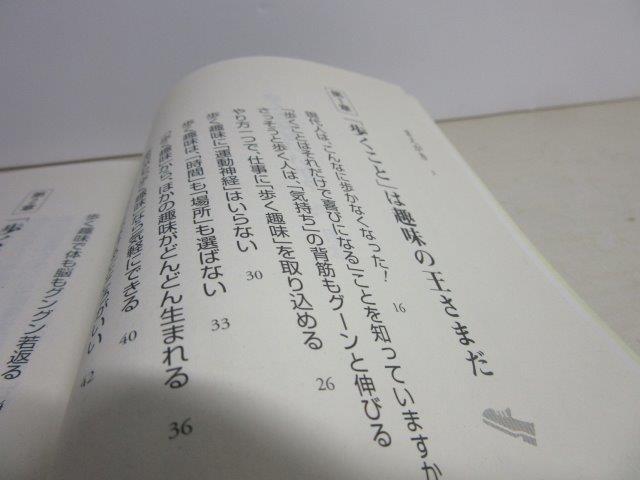 まえがき 3
第1章 「歩くこと」は趣味の王さまだ
現代人は、こんなに歩かなくなった! 16
「歩くことはそれだけで喜びになる」ことを知っていますか
さっそうと歩く人は、「気持ち」の背筋もグーンと伸びる
やり方一つで、仕事に「歩く趣味」を取り込める 26
歩く趣味に「運動神経」はいらない 30
歩く趣味は、「時間」も「場所」も選ばない 33
「歩く趣味」から、ほかの趣味がどんどん生まれる 36
気軽にできる 40
がいい 42
第2章 「歩く
歩く趣味で体も脳もグングン若返る